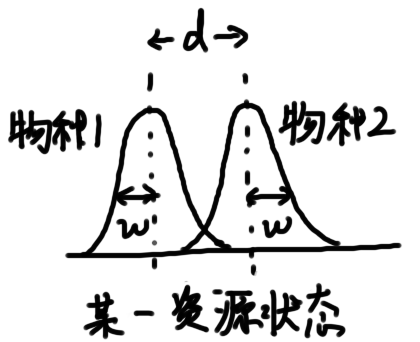 d
物种1 物种2
w w
某一资源状态